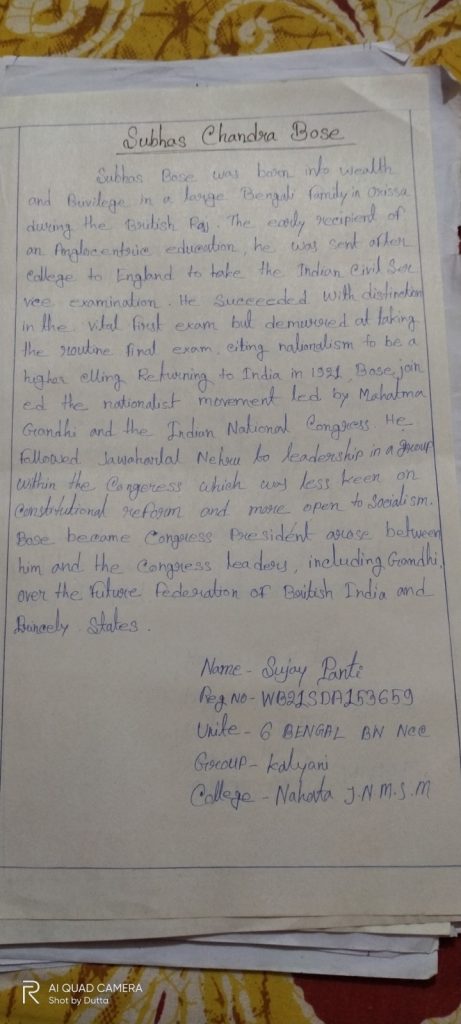 Subhas Chandra Bose
Subhas Bose was born into wealth
and Privilege in a large Bengali Family in Orissa
during the British Raj. The early recipient of
an Anglocentric education, he was sent after
College to England to take the Indian Civil Ser
vce examination. He Succeeded with distinction
in the vital first exam but demurred at taking
the routine final exam, citing nationalism to be a
higher clling Returning to India in 1921, Bose join
ed the nationalist movement led by Mahatma
Gandhi and the Indian National Congress He
Followed Jawaharlal Nehru to leadership in a group
within the Congress which was less keen on
Constitutional reform and more open to Socialism.
Bose became Congress President arose between
him and the Congress leaders, including Gandhi,
over the Future Federation of British India and
Princely States.
Name - Sujay Panti
Reg No - WB21SDA153659
Unite - 6 BENGAL BN NCC
Group - Kalyani
College - Nahata J.N.M.S.M
AI QUAD CAMERA
Shot by Dutta